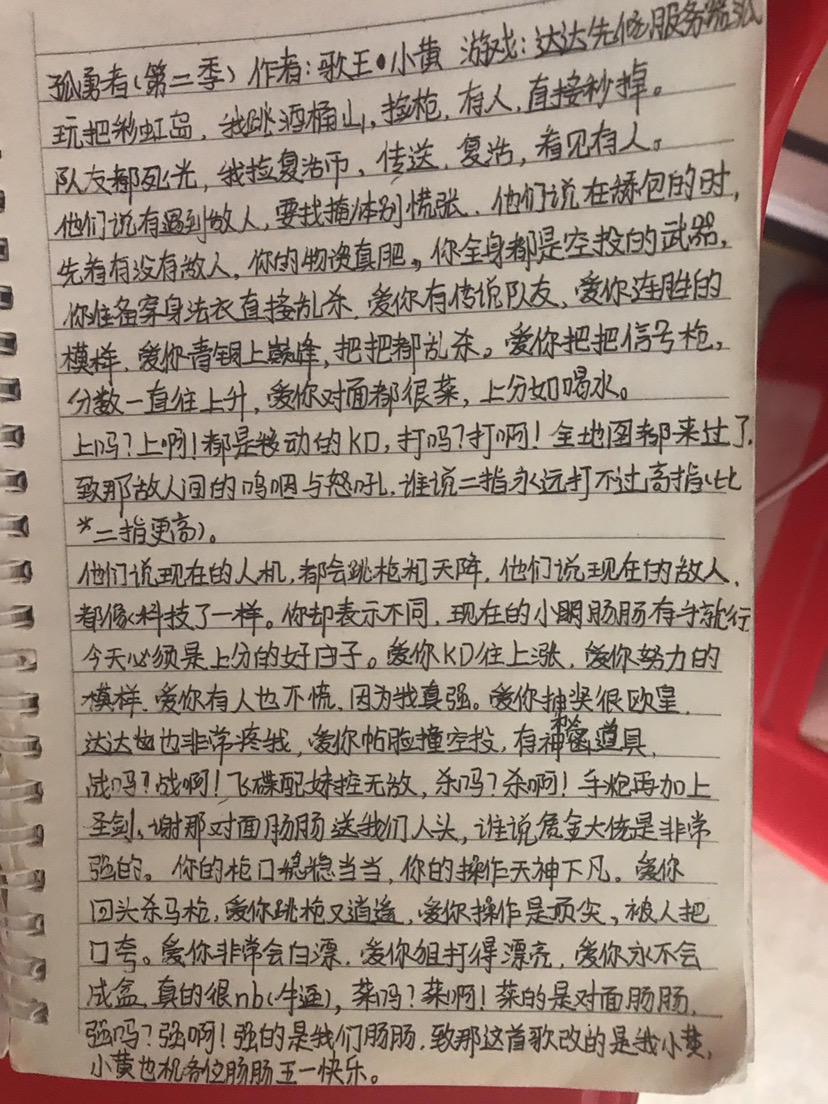 孤勇者(第二季) 作者:歌王•小黄 游戏:达达先 服务器
玩把彩虹岛,我跳酒桶山,捡枪,有人,直接秒掉。
队友都死光,我捡复活币、传送,复活,看见有人。
他们说有遇到敌人,要找掩体别慌张,他们说在舔包的时,
先看有没有敌人,你的物资真肥。你全身都是空投的武器,
你准备穿身法衣直接乱杀,爱你有传说队友,爱你连胜的
模样,爱你青铜上巅峰,把把都乱杀。爱你把把信号枪,
分数一直往上升,爱你对面都很菜,上分如喝水。
上吗?上啊!都是移动的KD,打吗?打啊!全地图都来过了.
致那敌人间的呜咽与怒吼,谁说二指永远打不过高指(比
*二指更高)。
他们说现在的人机,都会跳枪和天降,他们说现在的敌人,
都像科技了一样。你却表示不同,现在的小朋肠肠有手就行
今天必须是上分的好日子。爱你KD往上涨,爱你努力的
模样,爱你有人也不慌,因为我真强。爱你抽奖很欧皇,
达达也非常疼我,爱你帖脸撞空投,有神秘道具,
战吗?战啊!飞碟配妹控无敌,杀吗?杀啊!手炮再加上
圣剑,谢那对面肠肠送我们人头,谁说氪金大佬是非常
强的。你的枪口稳稳当当,你的操作天神下凡。爱你
回头杀马枪,爱你跳枪又逍遥,爱你操作是顶尖,被人把
口夸。爱你非常会白漂,爱你狙打得漂亮,爱你永不会
成盒,真的很nb(牛逼),菜吗?菜啊!菜的是对面肠肠,
强吗?强啊!强的是我们肠肠,致那这首歌改的是我小黄,
小黄也机各位肠肠五一快乐。